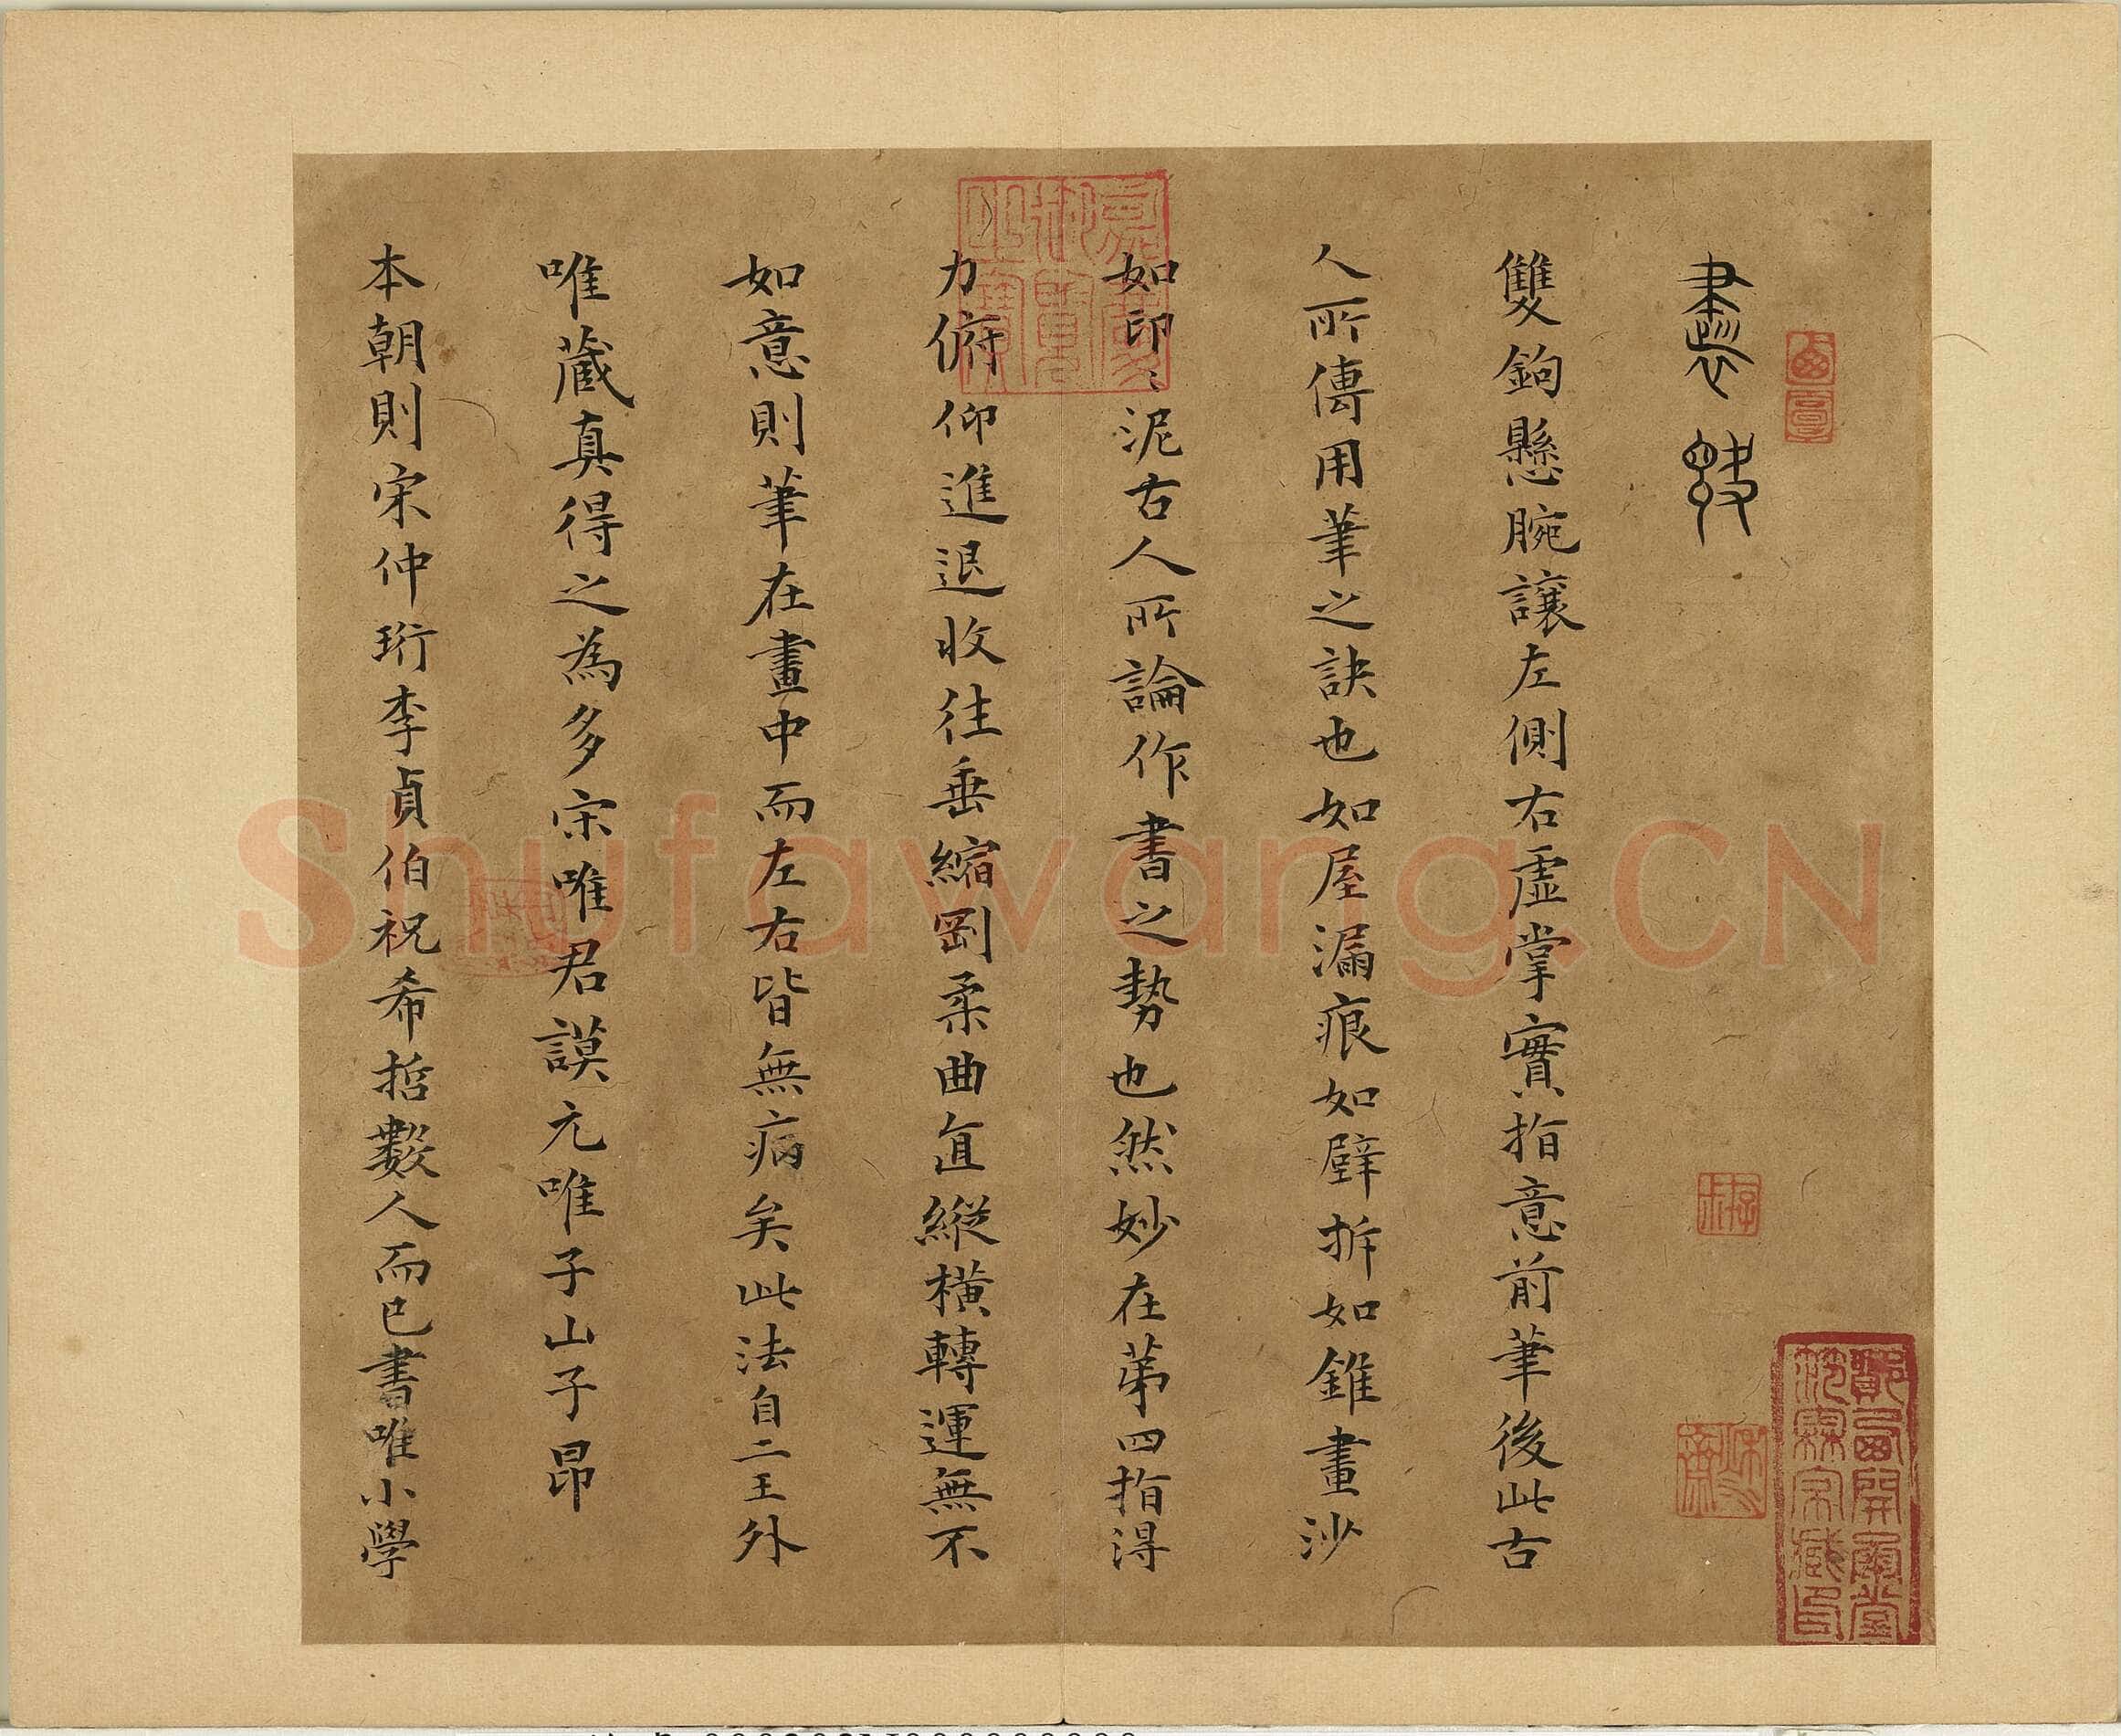 書訣
雙鉤懸腕讓左側右虛掌實指意前筆後此古
人所傳用筆之訣也如屋漏痕如壁拆如錐畫沙
如印〻泥古人所論作書之勢也然妙在苐四指得
力俯仰進退收往垂縮剛柔曲直縱橫轉運無不
如意則筆在畫中而左右皆無病矣此法自二王外
唯藏真得之為多宋唯君謨元唯子山子昂
本朝則宋仲珩李貞伯祝希哲數人而已書唯小學
嘉慶御覽之寶
Shufawang.CN